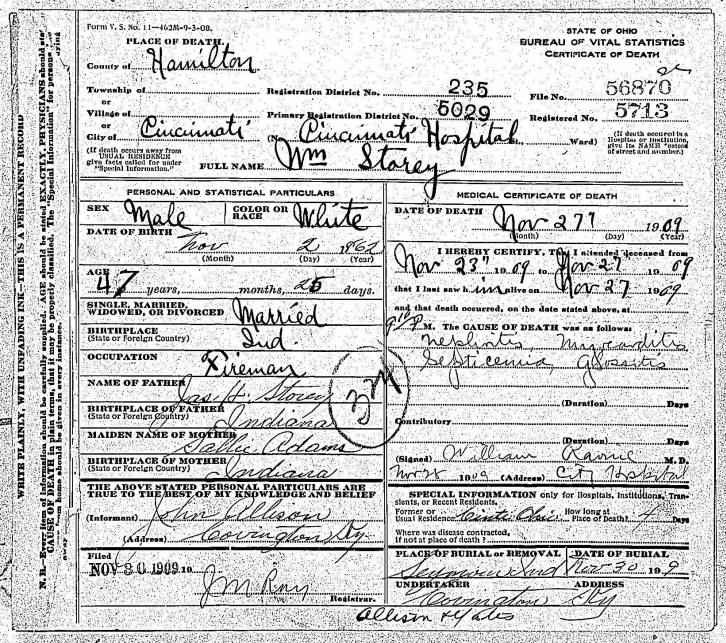 Form V. S. No. 11—462M-9-3-08.
STATE OF OHIO
BUREAU OF VITAL STATISTICS
CERTIFICATE OF DEATH
PLACE OF DEATH.
County of Hamilton
Township of
or
Village of
or
City of Cincinnati
Registration District No. 235
File No. 56870
Primary Registration District No. 5029
Registered No. 5713
(No. Cincinnati Hospital, Ward)
(If death occurred in a Hospital or Institution give its NAME instead of street and number.)
(If death occurs away from USUAL RESIDENCE give facts called for under "Special Information.")
FULL NAME Wm Storey
WRITE PLAINLY, WITH UNFADING INK—THIS IS A PERMANENT RECORD
N. B.—Every item of information should be carefully supplied. AGE should be stated EXACTLY. PHYSICIANS should state
CAUSE OF DEATH in plain terms, that it may be properly classified. The "Special Information" for persons
away from home should be given in every instance.
PERSONAL AND STATISTICAL PARTICULARS
SEX Male
COLOR OR RACE White
DATE OF BIRTH
Nov 2 1862
(Month) (Day) (Year)
AGE
47 years, months, 25 days.
SINGLE, MARRIED,
WIDOWED, OR DIVORCED Married
BIRTHPLACE
(State or Foreign Country) Ind.
OCCUPATION
Fireman
NAME OF FATHER Jas. H. Storey
BIRTHPLACE OF FATHER
(State or Foreign Country) Indiana
MAIDEN NAME OF MOTHER Sallie Adams
BIRTHPLACE OF MOTHER
(State or Foreign Country) Indiana
THE ABOVE STATED PERSONAL PARTICULARS ARE
TRUE TO THE BEST OF MY KNOWLEDGE AND BELIEF
(Informant) John Allison
(Address) Covington Ky.
Filed
NOV 30 1909 19
J M
Registrar.
MEDICAL CERTIFICATE OF DEATH
DATE OF DEATH Nov 27 1909
(Month) (Day) (Year)
I HEREBY CERTIFY, That I attended deceased from
Nov 23 1909 to Nov 27 1909
that I last saw him alive on Nov 27 1909
and that death occurred, on the date stated above, at
M. The CAUSE OF DEATH was as follows:
Nephritis, Myocarditis
Septicemia, Glossitis
(Duration) Days
Contributory
(Duration) Days
(Signed) William M. D.
Nov 28 1909 (Address) City Hospital
SPECIAL INFORMATION only for Hospitals, Institutions, Transients, or Recent Residents.
Former or
Usual Residence Cinti Ohio
How long at
Place of Death? 4 Days
Where was disease contracted,
if not at place of death?
PLACE OF BURIAL or REMOVAL
Seymour Ind
DATE OF BURIAL
Nov 30 1909
UNDERTAKER ADDRESS
Covington Ky
Allison & Yates